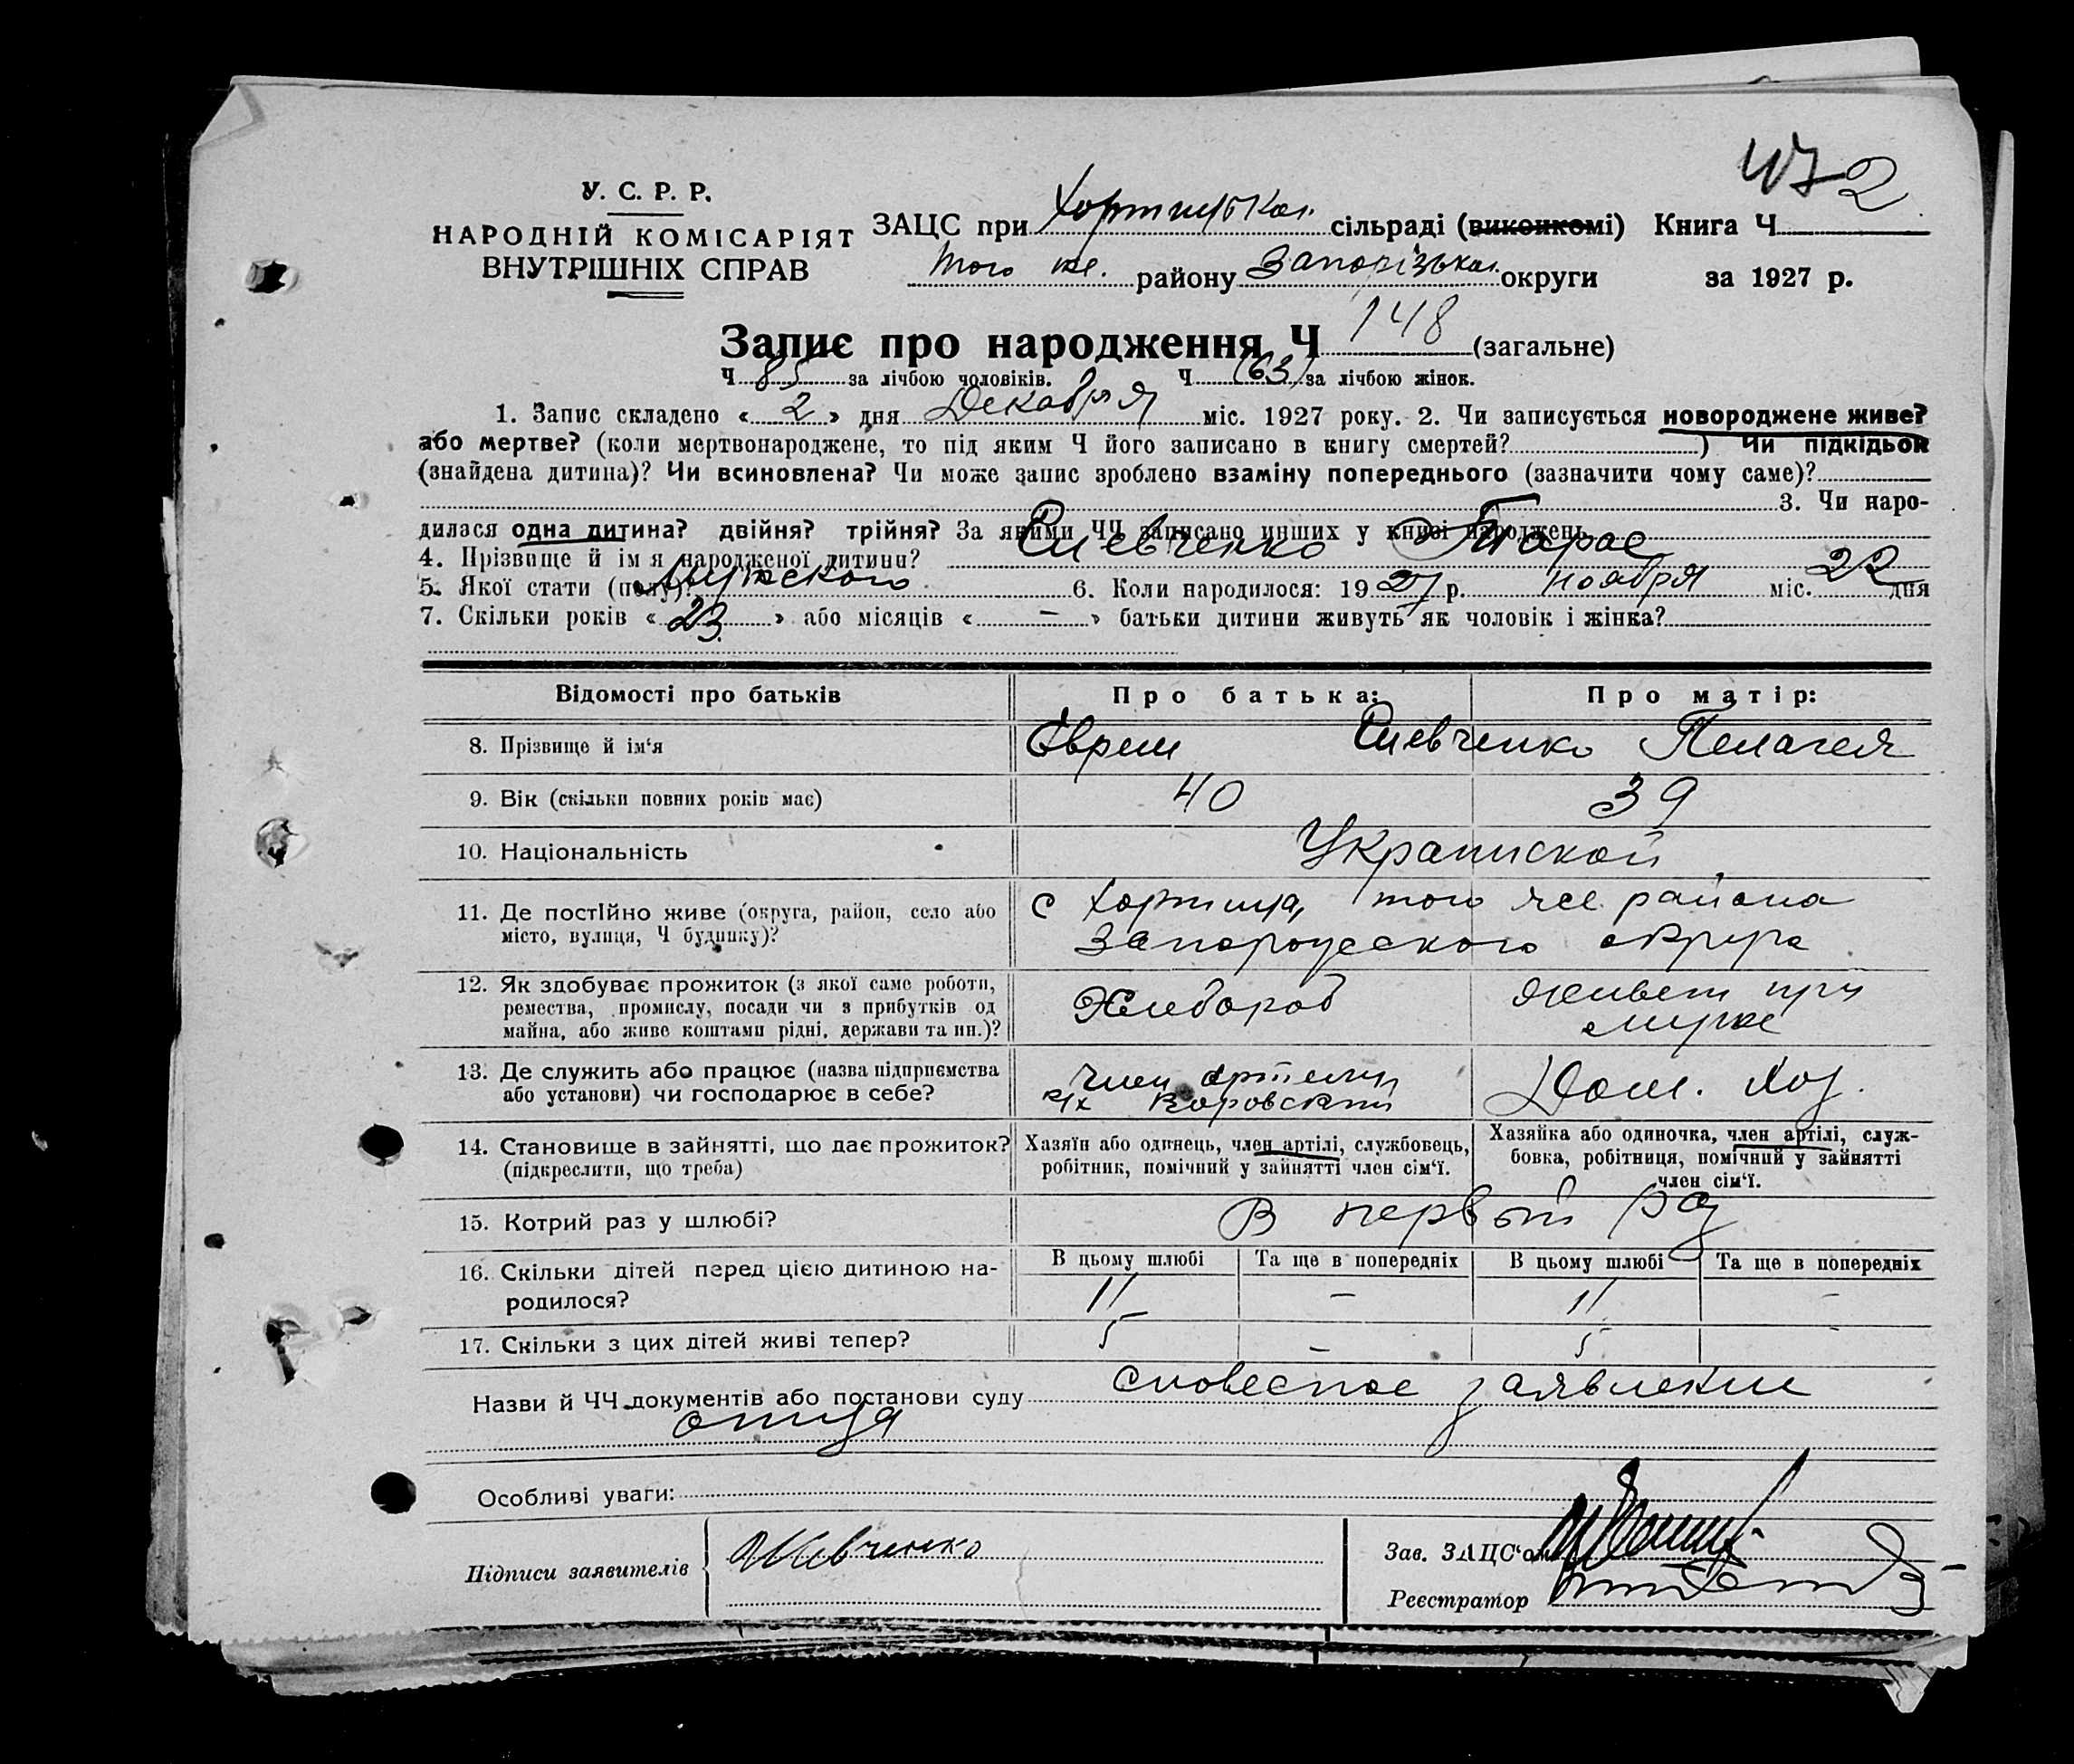 У. С. Р. Р.
НАРОДНІЙ КОМІСАРІЯТ
ВНУТРІШНІХ СПРАВ
ЗАЦС при Хортицькая сільраді (виконкомі) Книга Ч
того же району Запорізькая округи за 1927 р.
Запис про народження Ч 148 (загальне)
Ч 85 за лічбою чоловіків. Ч (63) за лічбою жінок.
1. Запис складено « 2 » дня Декабря міс. 1927 року. 2. Чи записується новороджене живе?
або мертве? (коли мертвонароджене, то під яким Ч його записано в книгу смертей?) Чи підкідьок
(знайдена дитина)? Чи всиновлена? Чи може запис зроблено взаміну попереднього (зазначити чому саме)?
3. Чи наро-
дилася одна дитина? двійня? трійня? За якими ЧЧ записано инших у книзі народжень
4. Прізвище й ім я народженої дитини? Шевченко Тарас
5. Якої стати (полу)? Мужского 6. Коли народилося: 1927 р. ноября міс. 22 дня
7. Скільки років « 23. » або місяців « – » батьки дитини живуть як чоловік і жінка?
Відомості про батьків Про батька: Про матір:
8. Прізвище й ім‘я Єврем Шевченко Пелагея
9. Вік (скільки повних років має) 40 39
10. Національність Украинской
11. Де постійно живе (округа, район, село або
місто, вулиця, Ч будинку)?
с Хортица, того же района
Запорожского округа
12. Як здобуває прожиток (з якої саме роботи,
ремества, промислу, посади чи з прибутків од
майна, або живе коштами рідні, держави та ин.)?
Хлебороб
живет при
муже
13. Де служить або працює (назва підприємства
або установи) чи господарює в себе?
Член артели
Дом. хоз.
14. Становище в зайнятті, що дає прожиток?
(підкреслити, що треба)
Хазяїн або одинець, член артілі, службовець,
робітник, помічний у зайнятті член сім‘ї.
Хазяйка або одиночка, член артілі, служ-
бовка, робітниця, помічний у зайнятті
член сім‘ї.
15. Котрий раз у шлюбі? В первый раз
16. Скільки дітей перед цією дитиною на-
родилося?
В цьому шлюбі Та ще в попередніх В цьому шлюбі Та ще в попередніх
11 – 11 –
17. Скільки з цих дітей живі тепер? 5 – 5 -
Назви й ЧЧ документів або постанови суду словесное заявление
отца
Особливі уваги:
Підписи заявителів Шевченко
Зав. ЗАЦС‘ом
Реєстратор